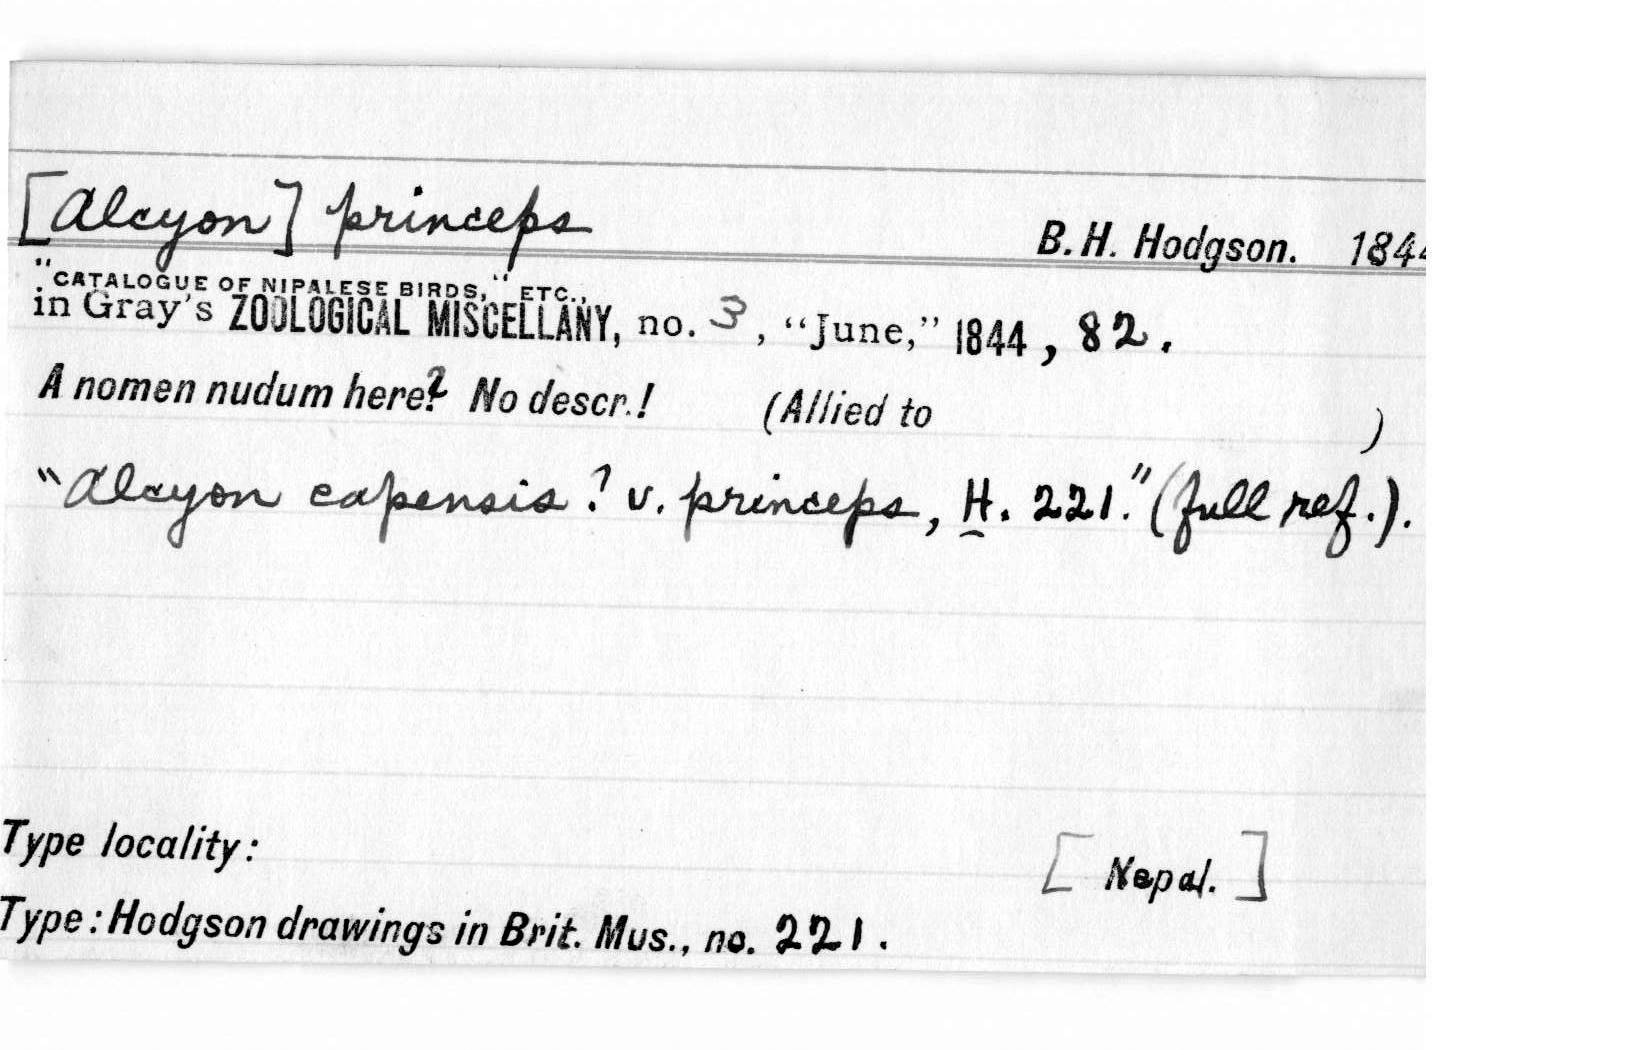 [Alcyon] princeps B. H. Hodgson. 1844
"CATALOGUE OF NIPALESE BIRDS," ETC.,
in Gray's ZOOLOGICAL MISCELLANY, no. 3, "June," 1844, 82.
A nomen nudum here? No descr.! (Allied to )
"Alcyon capensis? v. princeps, H. 221." (full ref.).
Type locality: [Nepal.]
Type: Hodgson drawings in Brit. Mus., no. 221.